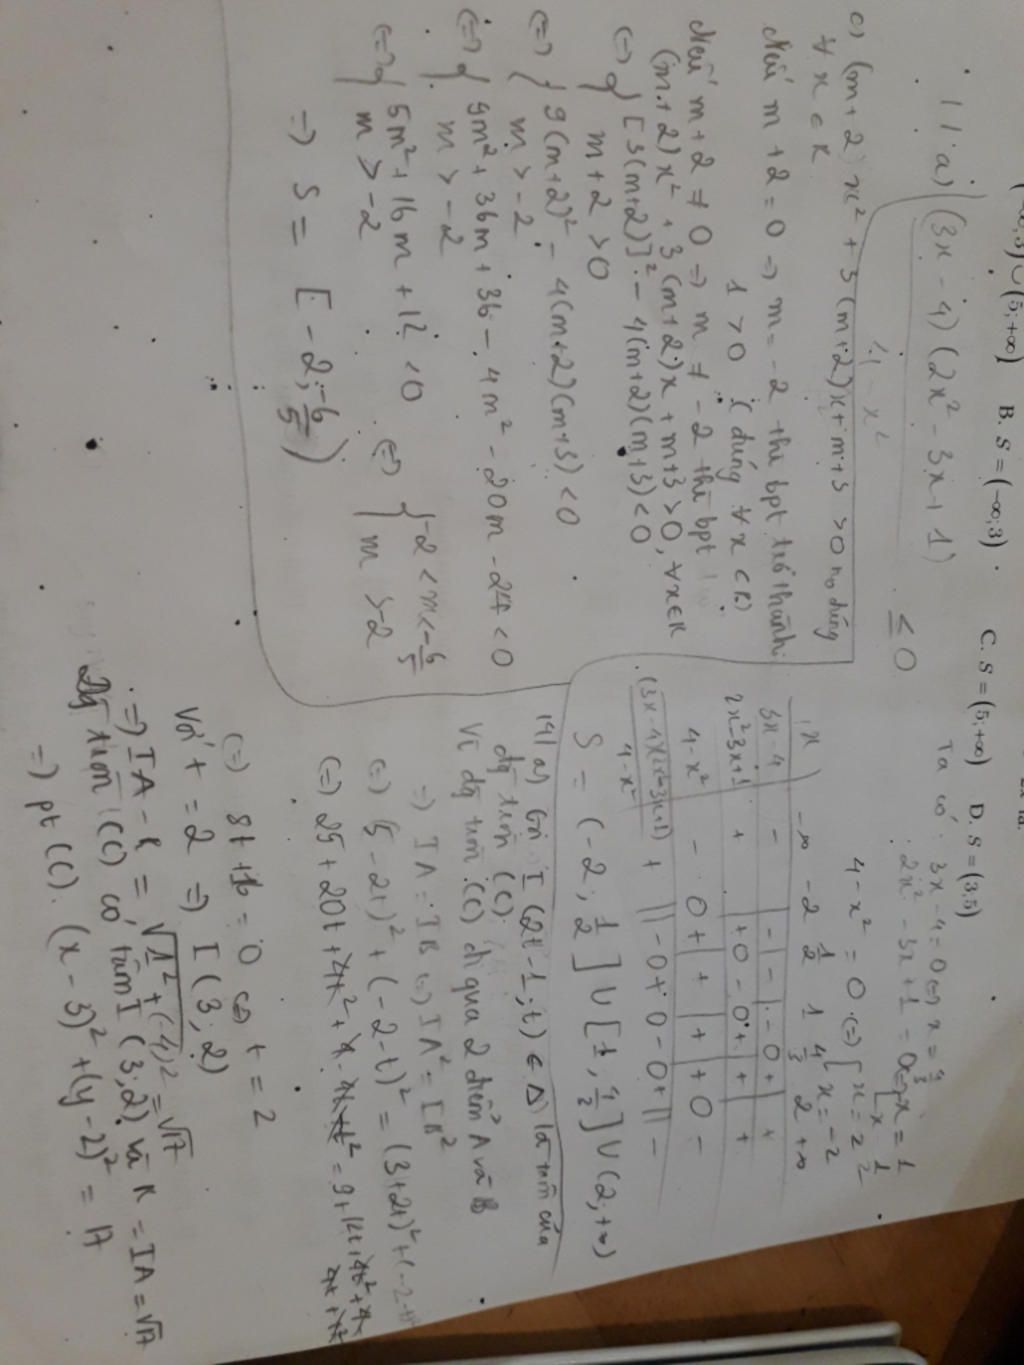 B. S = (-∞;3).
C. S = (5;+∞)
D. S = (3;5)
11.a) (3x - 4)(2x² - 3x + 1)
4 - x²
≤ 0
Ta có: 3x - 4 = 0
2x² - 3x + 1 = 0
4 - x² = 0 (=) [ x = 2
x = -2
x | -∞ -2 1/2 1 4/3 2 +∞
3x - 4 | - | - | - | - 0 + | +
2x² - 3x + 1 | + | + 0 - 0 + | + | +
4 - x² | - 0 + | + | + | + 0 -
(3x - 4)(2x² - 3x + 1)
4 - x²
+ || - 0 + 0 - 0 + || -
S = (-2; 1/2] ∪ [1, 4/2] ∪ (2; +∞)
c) (m + 2)x² + 3(m + 2)x + m + 3 > 0 no đúng
∀ x ∈ R
Nếu m + 2 = 0 => m = -2 thì bpt trở thành:
1 > 0 (đúng ∀ x ∈ R)
Nếu m + 2 ≠ 0 => m ≠ -2 thì bpt
(m + 2)x² + 3(m + 2)x + m + 3 > 0, ∀x ∈ R
(=) { [3(m+2)]² - 4(m+2)(m+3) < 0
m + 2 > 0
(=) { 9(m+2)² - 4(m+2)(m+3) < 0
m > -2
(=) { 9m² + 36m + 36 - 4m² - 20m - 24 < 0
m > -2
(=) { 5m² + 16m + 12 < 0
m > -2
(=) { -2 < m < -6/5
m > -2
=> S = [-2; -6/5)
14) a) Gọi I (2t - 1; t) ∈ Δ) là tâm của
đg tròn (C).
Vì đg tròn (C) đi qua 2 điểm A và B
=> IA = IB (=) IA² = IB²
(=) (5 - 2t)² + (-2 - t)² = (3 + 2t)² +
(=) 8t + 16 = 0 (=) t = 2
Với t = 2 => I (3; 2)
=> IA = R = √1² + (-4)² = √17
Đg tròn (C) có tâm I (3; 2) và R = IA = √17
=> pt (C): (x - 3)² + (y - 2)² = 17